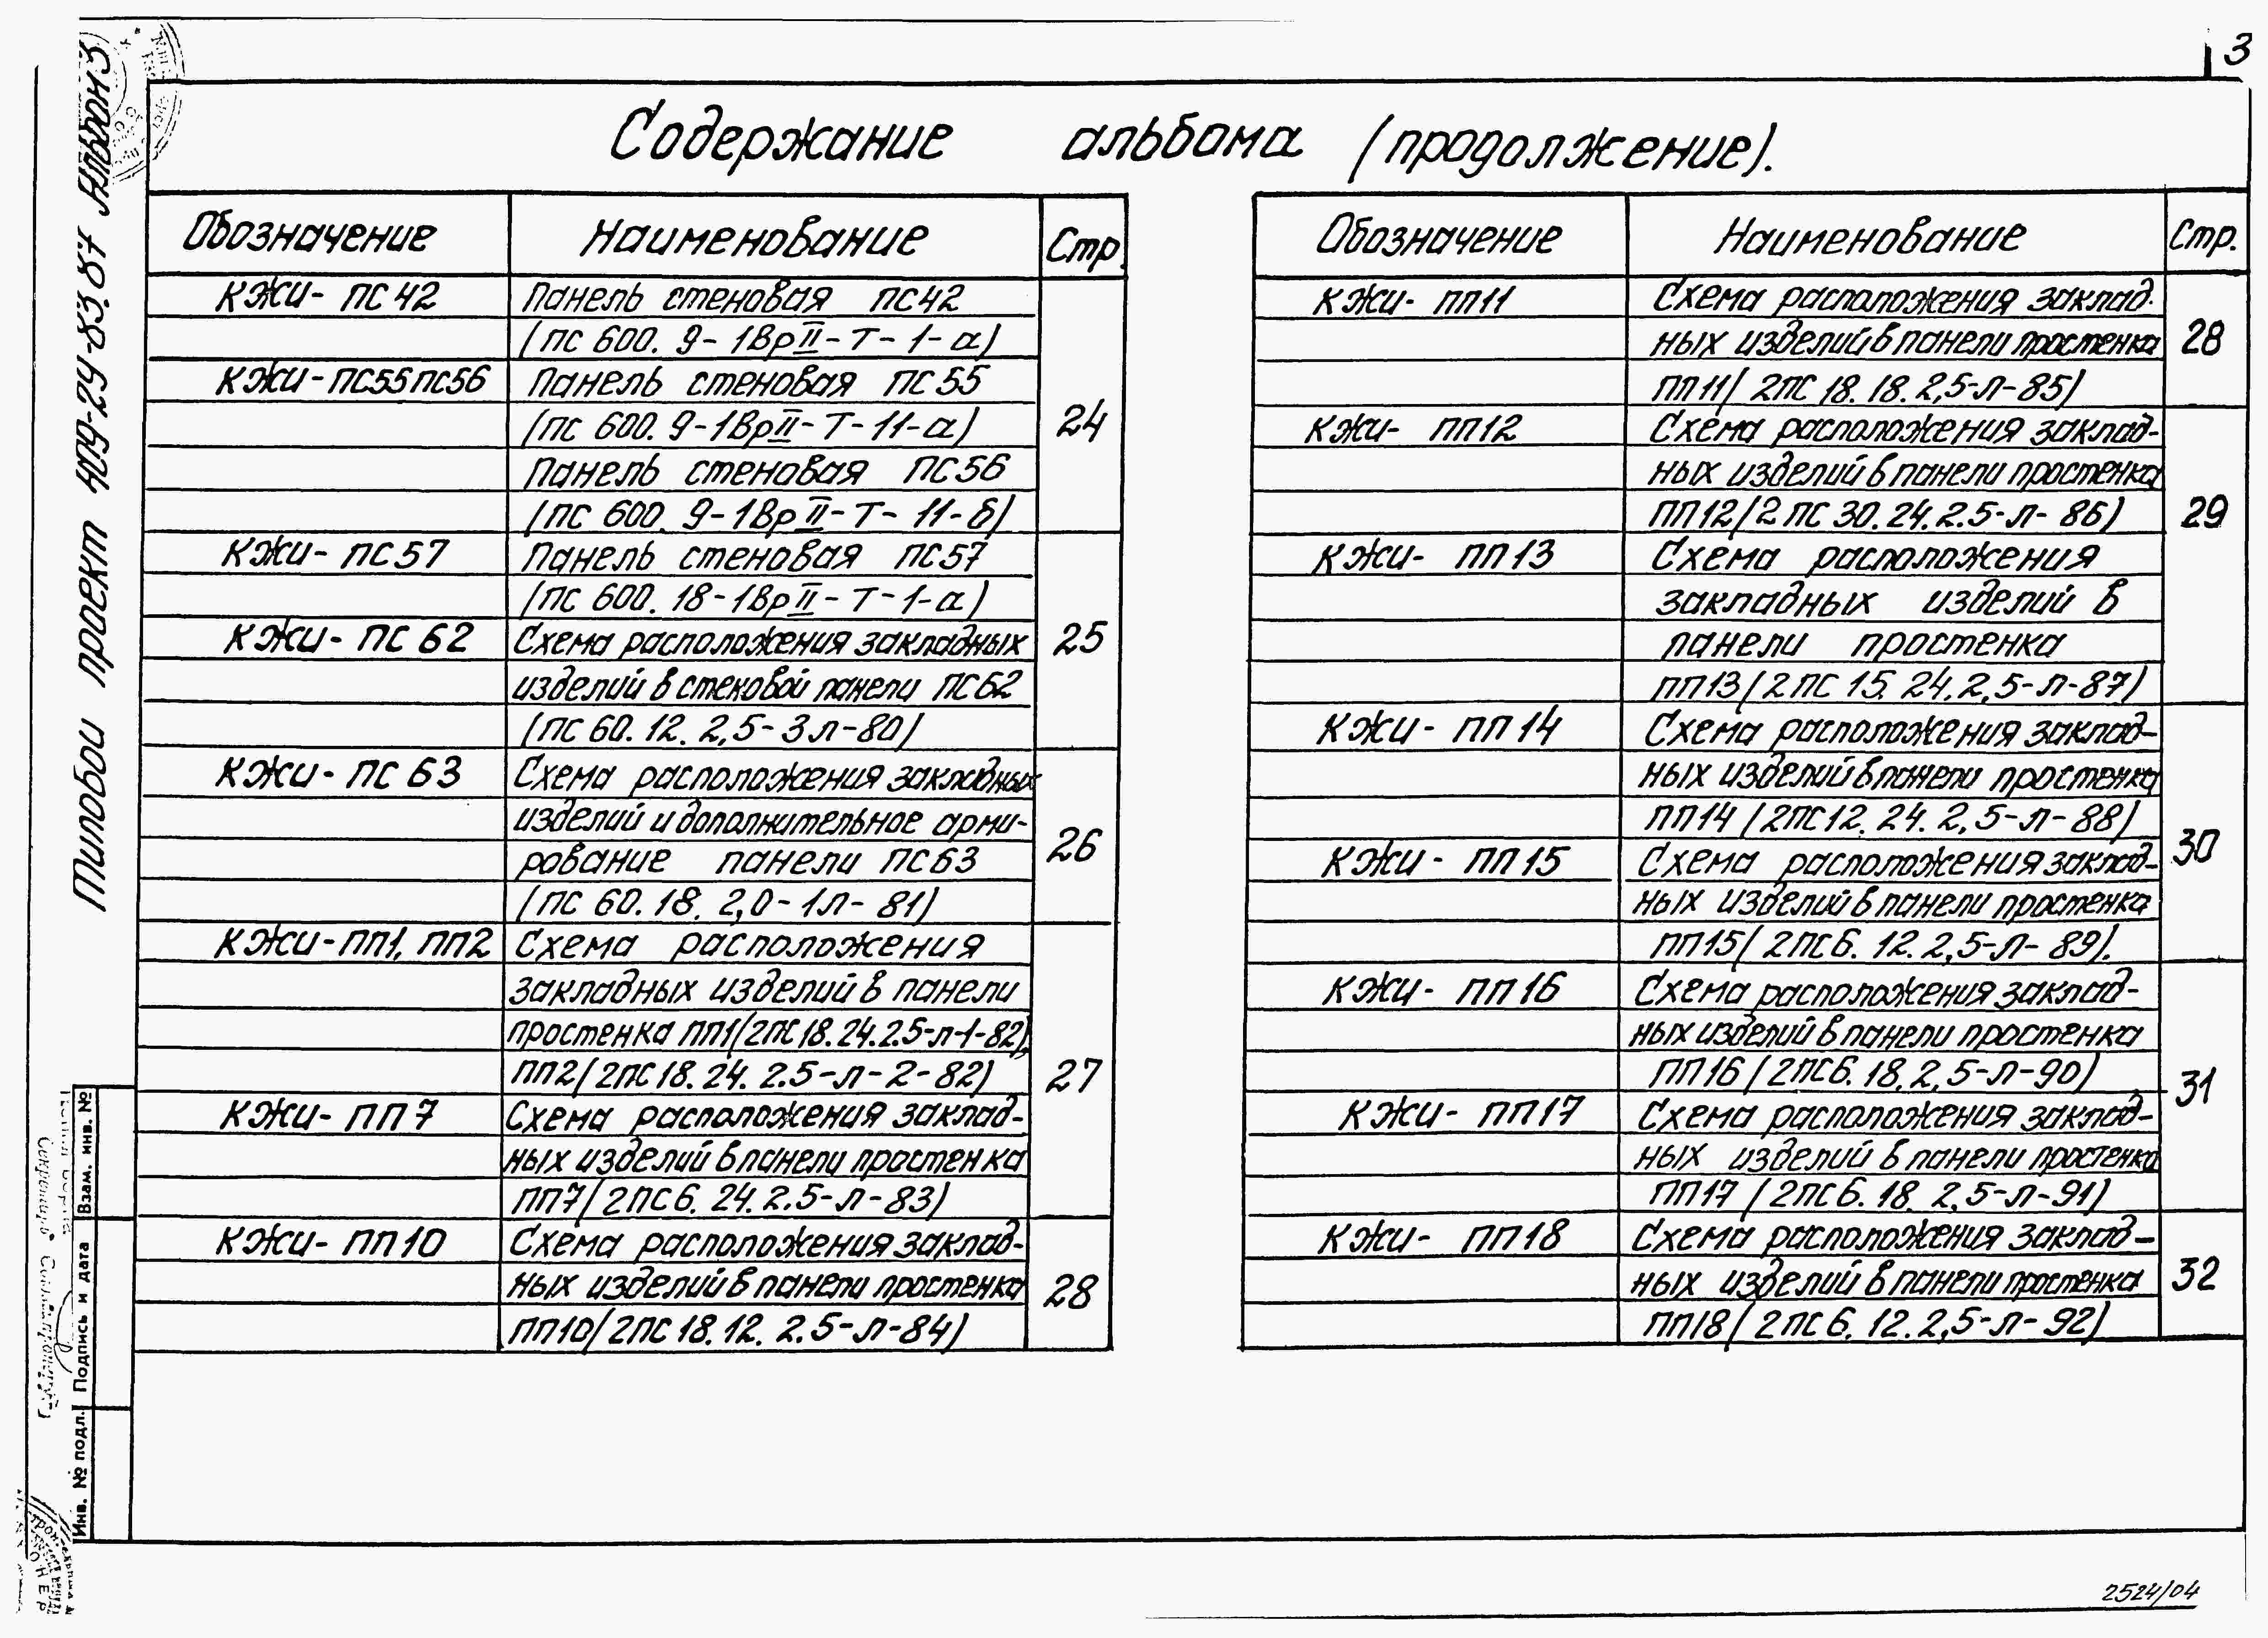 3
Содержание альбома (продолжение).
Типовой проект 409-24-83.87 Альбом 3
Обозначение Наименование Стр.
КЖИ- ПС 42 Панель стеновая ПС42
(ПС 600. 9- 1Вр II - Т - 1 - а)
КЖИ - ПС55 ПС56 Панель стеновая ПС 55
24
(ПС 600. 9-1ВрII- Т- 11-а)
Панель стеновая ПС56
(ПС 600. 9-1Вр II - Т - 11-б)
КЖИ- ПС57 Панель стеновая ПС57
(ПС 600. 18-1ВрII - Т-1-а)
КЖИ- ПС 62 Схема расположения закладных
25
изделий в стеновой панели ПС62
(ПС 60. 12. 2,5- 3л-80)
КЖИ- ПС 63 Схема расположения закладных
изделий и дополнительное арми-
26
рование панели ПС63
(ПС 60. 18. 2,0 - 1л- 81)
КЖИ-ПП1, ПП2 Схема расположения
закладных изделий в панели
простенка ПП1(2ПС 18. 24. 2.5-л-1-82),
ПП2(2ПС 18. 24. 2.5-л-2-82)
27
КЖИ- ПП 7 Схема расположения заклад-
ных изделий в панели простенка
ПП7(2ПС 6. 24. 2.5-л-83)
КЖИ- ПП10 Схема расположения заклад-
ных изделий в панели простенка
28
ПП10(2ПС 18. 12. 2.5-л-84)
Обозначение Наименование Стр.
КЖИ- ПП11 Схема расположения заклад-
ных изделий в панели простенка
28
ПП 11( 2ПС 18. 18. 2,5-л-85)
КЖИ- ПП12 Схема расположения заклад-
ных изделий в панели простенка
ПП12(2 ПС 30. 24. 2.5-л- 86)
29
КЖИ- ПП 13 Схема расположения
закладных изделий в
панели простенка
ПП13(2 ПС 15. 24. 2,5-л-87)
КЖИ- ПП 14 Схема расположения заклад-
ных изделий в панели простенка
ПП14 (2ПС 12. 24. 2,5-л-88)
30
КЖИ- ПП 15 Схема расположения заклад-
ных изделий в панели простенка
ПП15( 2ПС 6. 12. 2,5-л- 89).
КЖИ- ПП 16 Схема расположения заклад-
ных изделий в панели простенка
ПП16 (2ПС6. 18. 2,5-л-90)
31
КЖИ- ПП17 Схема расположения заклад-
ных изделий в панели простенка
ПП17 (2ПС 6. 18. 2,5-л-91)
КЖИ- ПП18 Схема расположения заклад-
ных изделий в панели простенка
32
ПП18( 2ПС 6. 12. 2,5-л-92)
Взам. инв. №
Подпись и дата
Инв. № подл.
2524/04